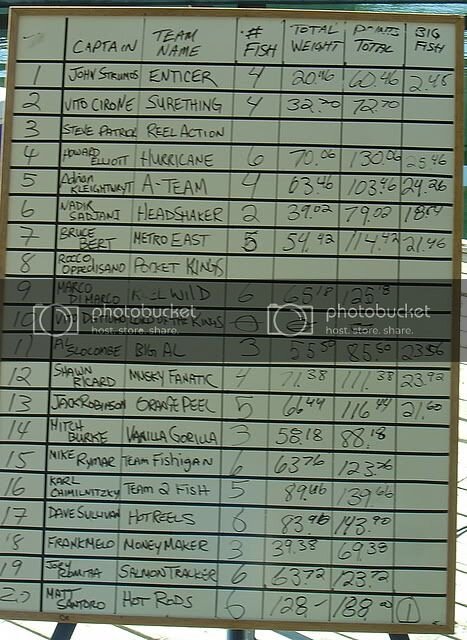 CAPTAIN TEAM NAME # FISH TOTAL WEIGHT POINTS TOTAL BIG FISH
1 JOHN ENTICER 4 20.46 60.46 2.48
2 VITO CIRONE SURETHING 4 32.70 72.70
3 STEVE PATRICK REEL ACTION
4 HOWARD ELLIOTT HURRICANE 6 70.06 130.06 25.46
5 Adrian A-TEAM 4 63.46 103.46 24.26
6 NADIR SADJANI HEADSHAKER 2 39.02 79.02
7 BRUCE BERT METRO EAST 5 54.42 114.42 21.46
8 ROCCO OPPEDISANO POCKET KINGS
9 MARCO DIMARCO WILD 6 65.18 125.18
10 VITO LORD OF THE KINGS
photobucket photobucket
host. store. share. host. store. share.
11 AL SLOCOMBE BIG AL 3 55.50 85.50 23.56
12 SHAWN RICARD MUSKY FANATIC 4 71.38 111.38 23.92
13 JACK ROBINSON ORANGE PEEL 5 66.44 116.44 21.60
14 MITCH BURKE VANILLA GORILLA 3 58.18 88.18
15 MIKE RYMAR TEAM FISHIGAN 6 63.76 123.76
16 KARL CHIMILNITZKY TEAM 2 FISH 5 89.66 139.66
17 DAVE SULLIVAN HOT REELS 6 83.90 143.90
18 FRANK MELO MONEY MAKER 3 39.38 69.38
19 JOEY ROMITHA SALMON TRACKER 6 63.72 123.72
20 MATT SANTORO HOT RODS 6 128.- 188.00 1